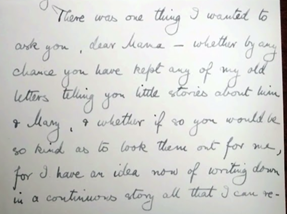 There was one thing I wanted to
ask you, dear Mama – whether by any
chance you have kept any of my old
letters telling you little stories about him
& Mary, & whether if so you would be
so kind as to look them out for me,
for I have an idea now of writing down
in a continuous story all that I can re-